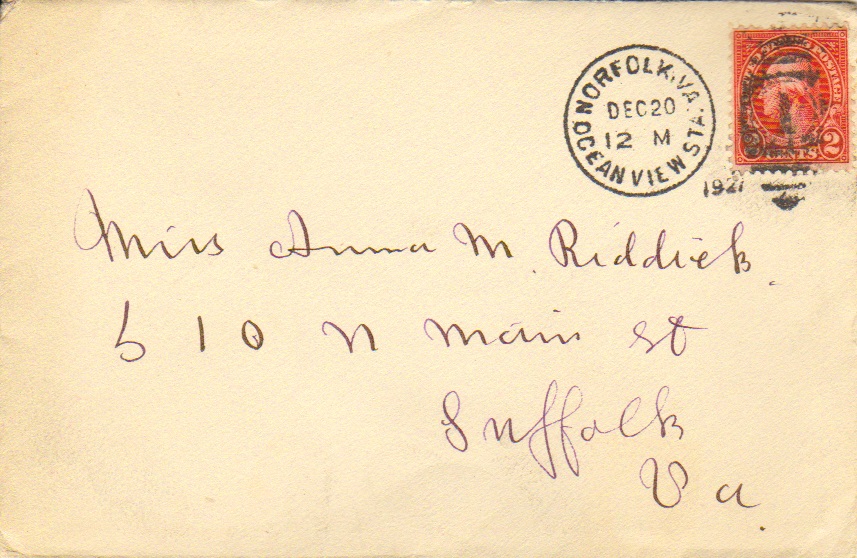 NORFOLK, VA.
DEC 20
12 M
OCEAN VIEW STA.
1927
UNITED STATES POSTAGE
2 CENTS 2
Miss Anna M. Riddick.
510 N Main St
Suffolk
Va.